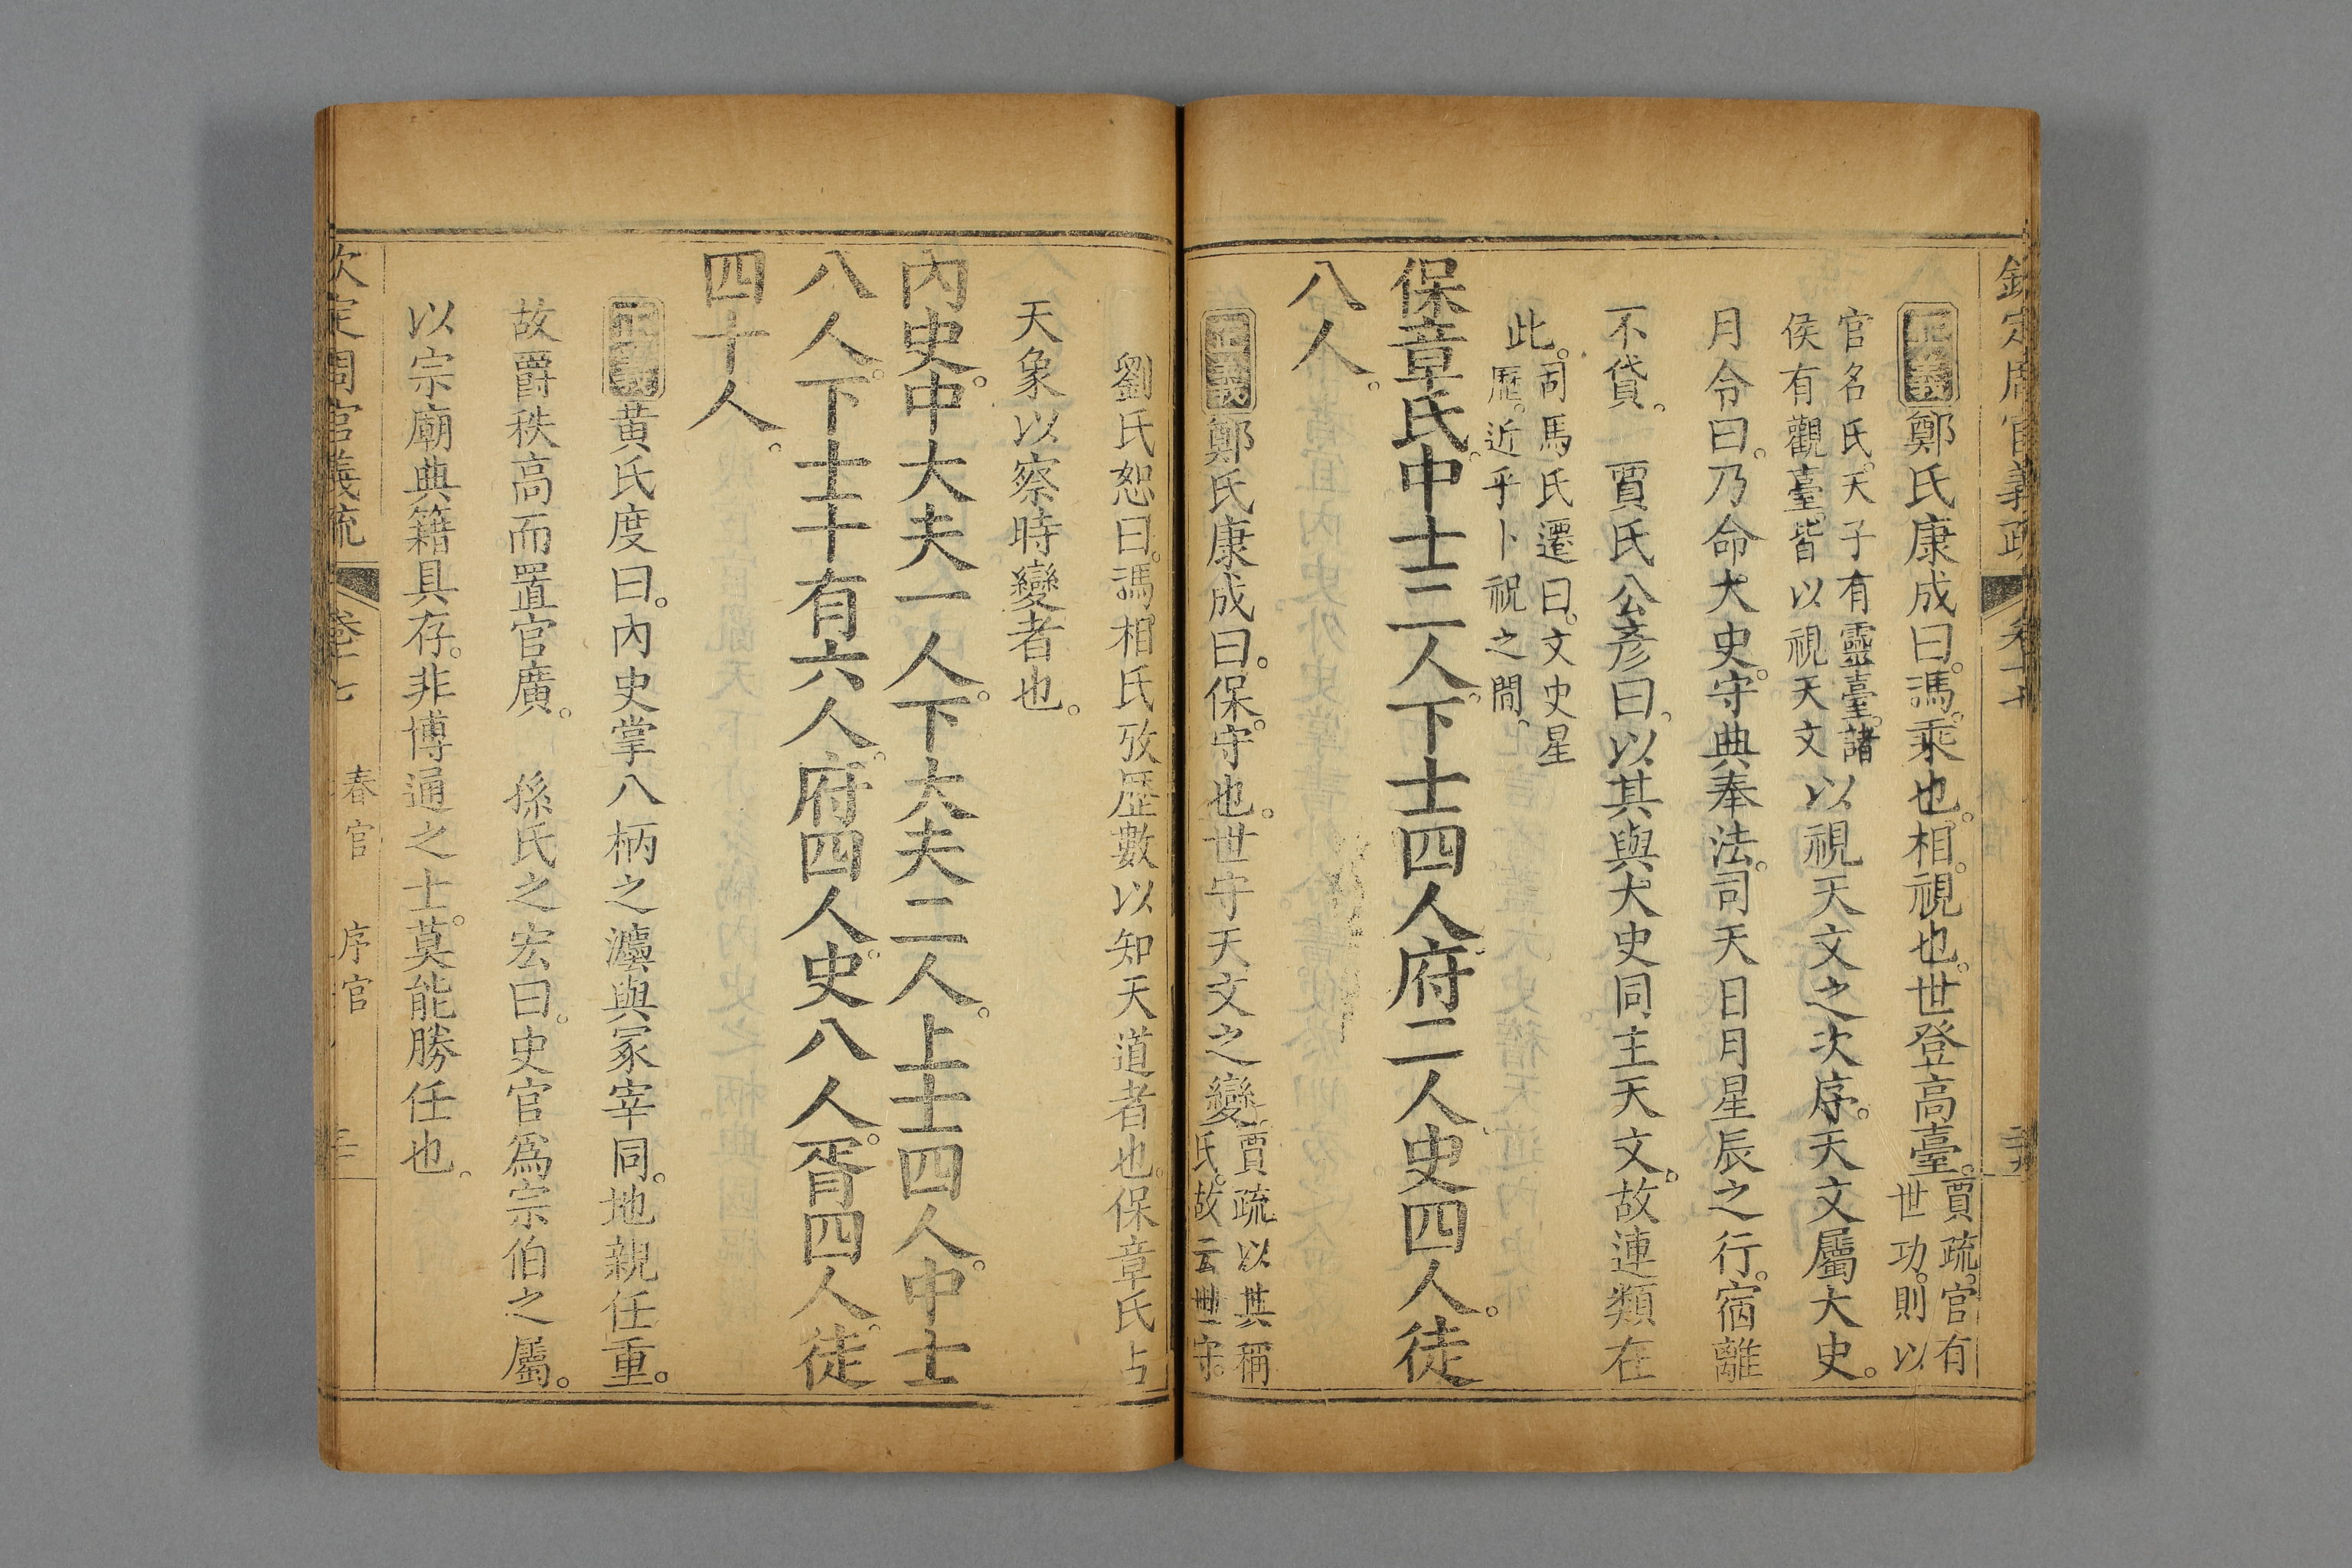 欽定周官義疏 卷十七
正義鄭氏康成曰。馮。乘也。相。視也。世登高臺。賈疏。官有世功。則以
官名氏。天子有靈臺。諸侯有觀臺。皆以視天文以視天文之次序。天文屬大史。
月令曰。乃命大史。守典奉法。司天日月星辰之行。宿離
不貸。 賈氏公彥曰。以其與大史同主天文。故連類在
此。司馬氏遷曰。文史星歷。近乎卜祝之間。
保章氏。中士二人。下士四人。府二人。史四人。徒
八人。
正義鄭氏康成曰。保。守也。世守天文之變。賈疏以其稱氏。故云世守。
劉氏恕曰。馮相氏攷歴數以知天道者也。保章氏占
天象以察時變者也。
內史。中大夫一人。下大夫二人。上士四人。中士
八人。下士十有六人。府四人。史八人。胥四人。徒
四十人。
正義黄氏度曰。內史掌八柄之灋與冢宰同。地親任重。
故爵秩高而置官廣。 孫氏之宏曰。史官爲宗伯之屬。
以宗廟典籍具存。非博通之士。莫能勝任也。
欽定周官義疏 卷十七 春官 序官